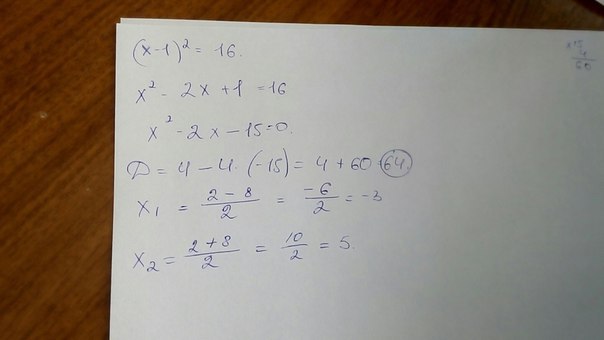 (x-1)² = 16.
x² - 2x + 1 = 16
x² - 2x - 15 = 0.
D = 4 - 4 · (-15) = 4 + 60 = 64.
x₁ = (2 - 8)/2 = -6/2 = -3
x₂ = (2 + 8)/2 = 10/2 = 5.
x 15
4
60